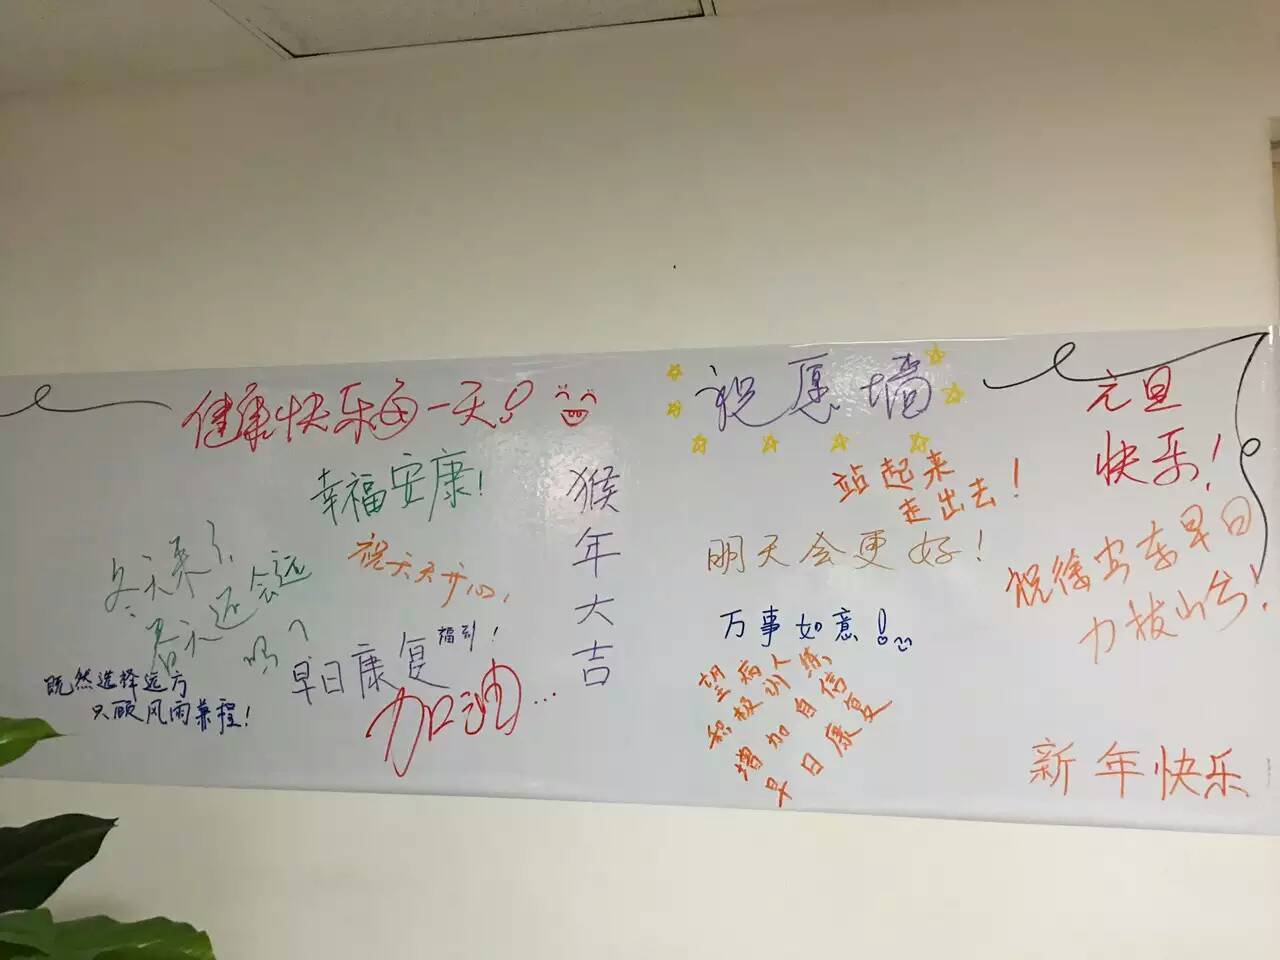 健康快乐每一天!
幸福安康!
冬天来了,
春天还会远
吗?
祝天天开心,
既然选择远方
只顾风雨兼程!
早日康复
福到!
加油...
猴年大吉
祝愿墙
站起来
走出去!
明天会更好!
万事如意!
望病人
积极训练,
增加自信
早日康复
元旦
快乐!
祝徐安东早日
力拔山兮!
新年快乐